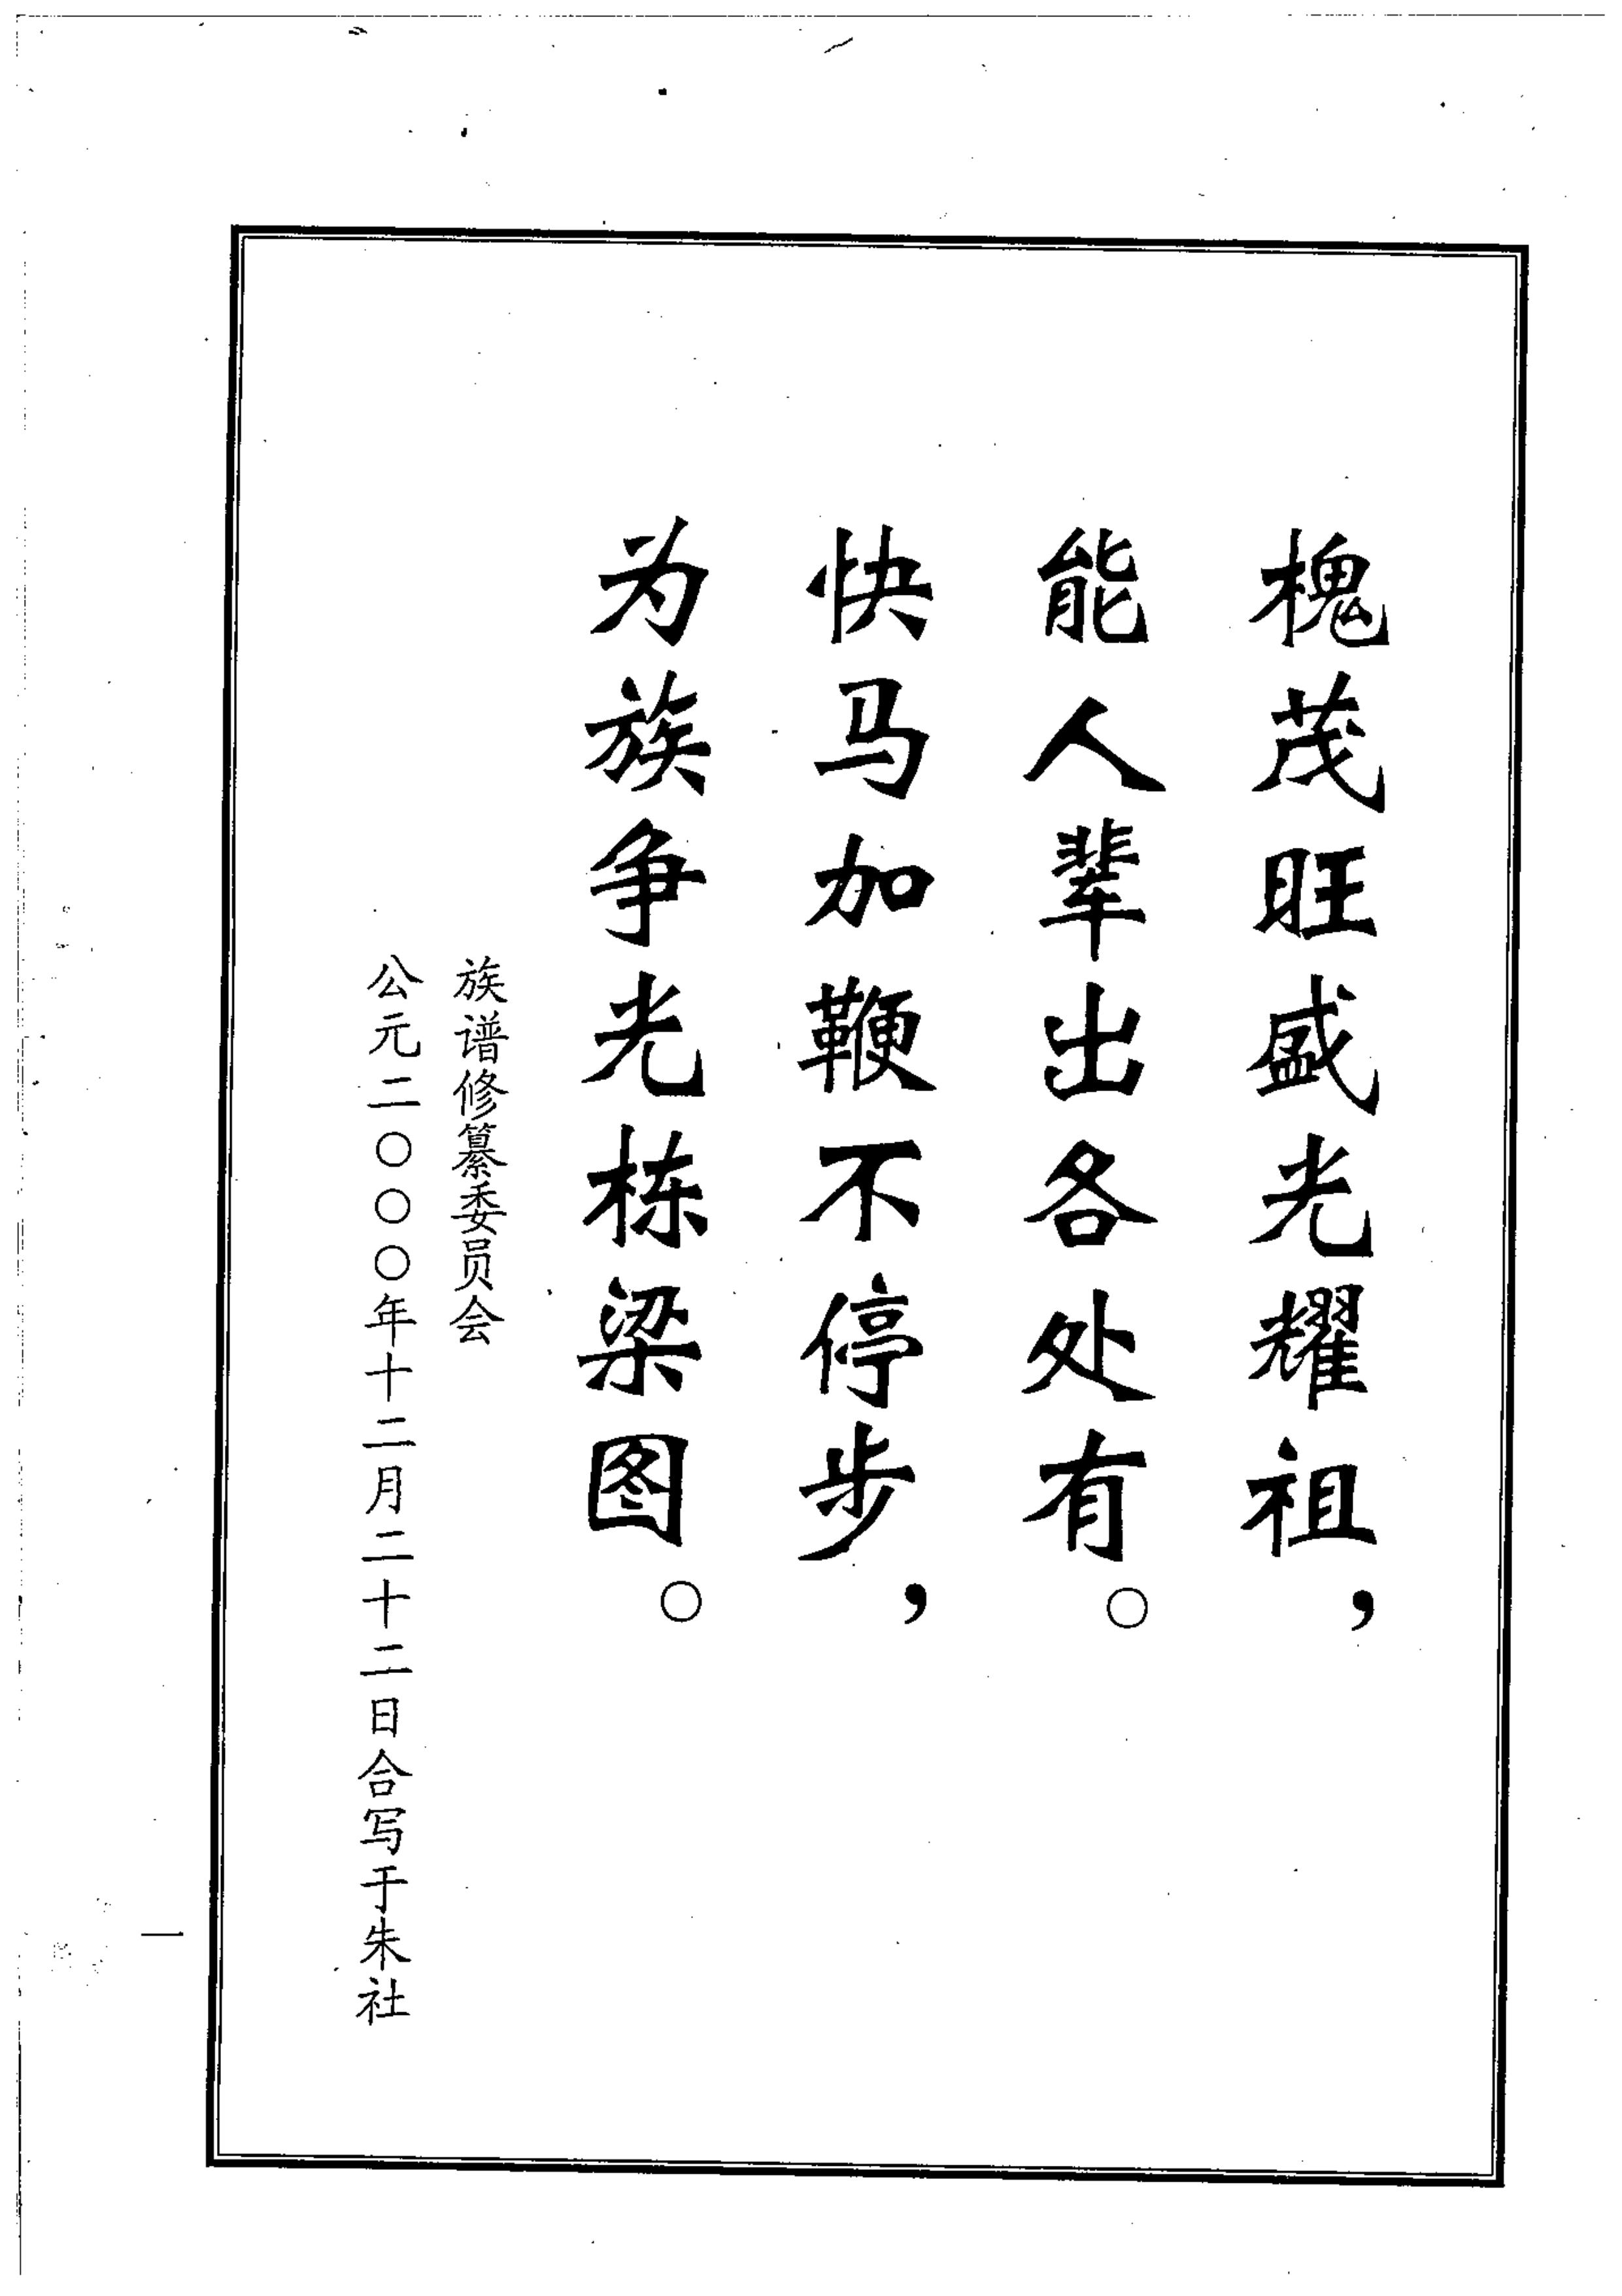 槐茂旺盛光耀祖，
能人辈出各处有。
快马加鞭不停步，
为族争光栋梁图。
族谱修纂委员会
公元二〇〇〇年十二月二十二日合写于朱社
一